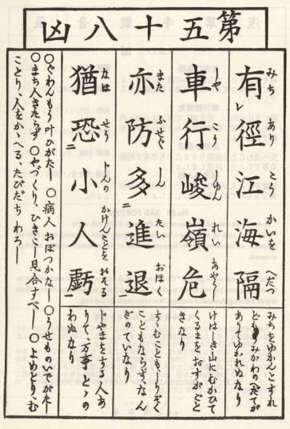 第五十八凶
有徑江海隔
みち あり こう かいを へだつ
みちをゆかんとすれ
どもうみかわのへだてが
ありてゆかれぬなり
車行峻嶺危
しや こう しゆん れい あやうし
けはしき山にむかひて
くるまをおすがごと
きなり
亦防多進退
また ふせぐ しん たい おほく
すゝむこともしりぞく
こともならず、なん
ぎのていなり
猶恐小人虧
なほ せう じんの かけんことを おそる
じやまをする人あ
りて、万事とゝの
わぬなり
〇ぐわんもう叶ひがたし 〇病人おぼつかなし 〇うせものいでがたし
〇まち人きたらず 〇やづくり、ひきこし見合すべし 〇よめとり、む
ことり、人をかゝへる、たびだちわろし